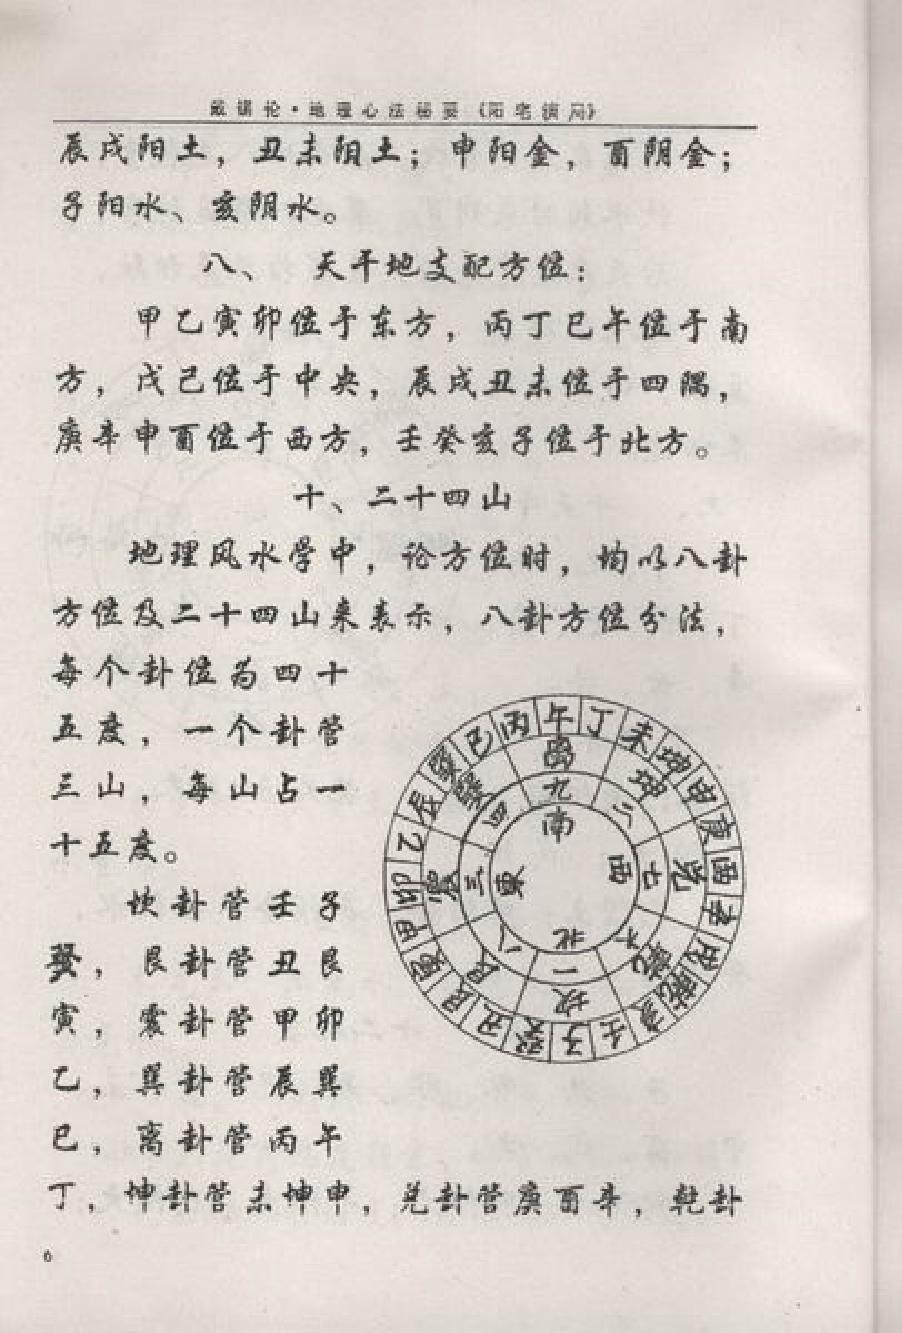 戴锡伦·地理心法秘要《阳宅演局》
辰戌阳土，丑未阳土；申阳金，酉阴金；
子阳水、亥阴水。
八、 天干地支配方位：
甲乙寅卯位于东方，丙丁巳午位于南
方，戊己位于中央，辰戌丑未位于四隅，
庚辛申酉位于西方，壬癸亥子位于北方。
十、二十四山
地理风水学中，论方位时，均以八卦
方位及二十四山来表示，八卦方位分法，
每个卦位为四十
五度，一个卦管
三山，每山占一
十五度。
坎卦管壬子
癸，艮卦管丑艮
寅，震卦管甲卯
乙，巽卦管辰巽
巳，离卦管丙午
丁，坤卦管未坤申，兑卦管庚酉辛，乾卦
午丁未坤申庚酉辛戌乾亥壬子癸丑艮寅甲卯乙辰巽巳丙
离坤兑乾坎艮震巽
九二七六一八三四
南西北東
6